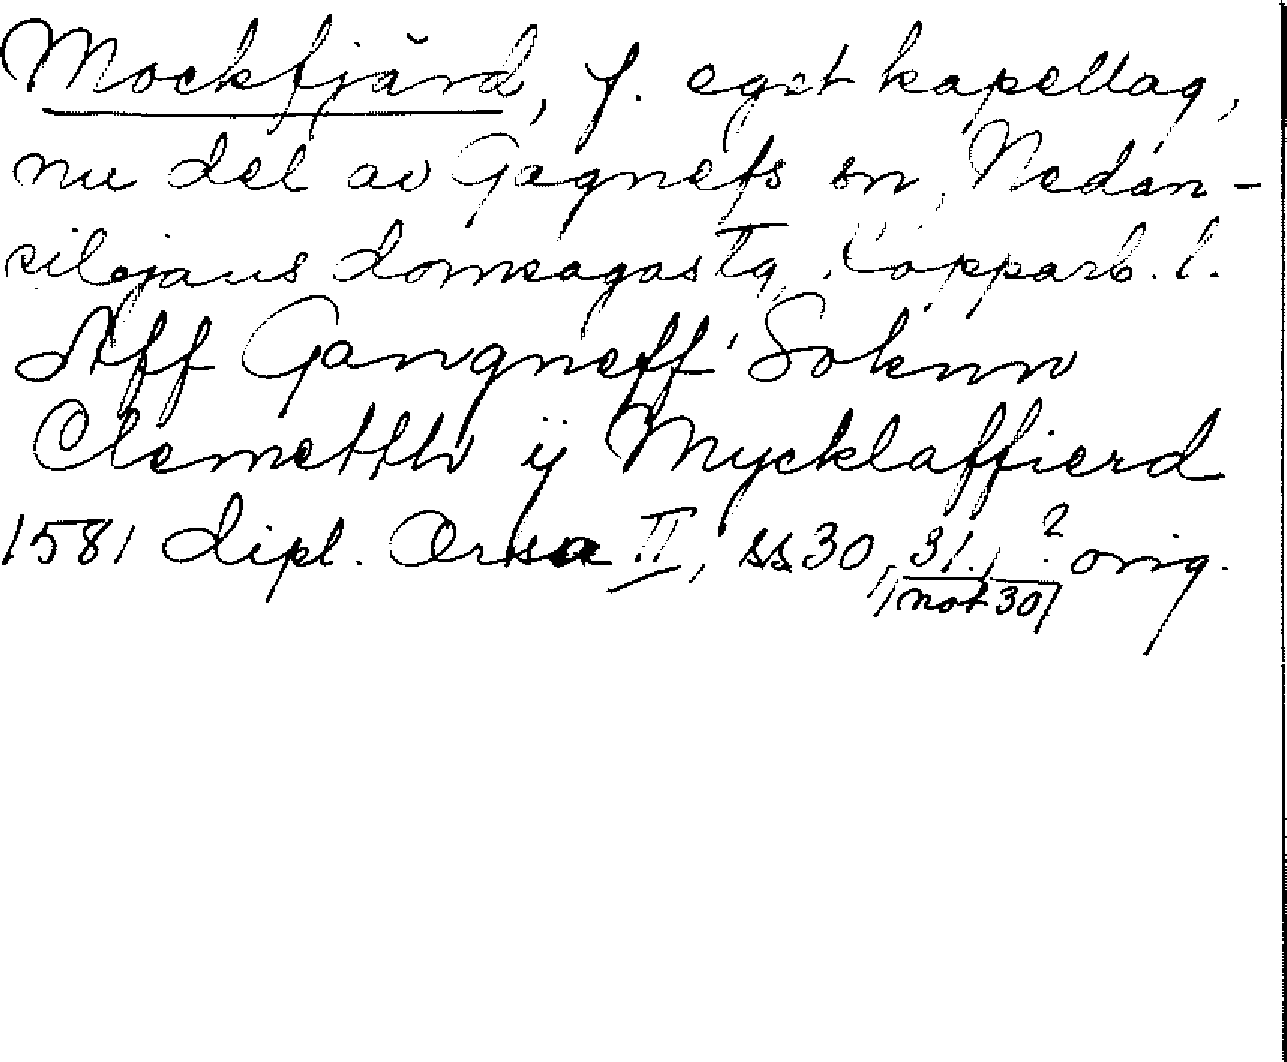 Mockfjärd, f. eget kapellag,
nu del av Gagnefs sn, Nedan-
siljans domsagas tg, Kopparb. l.
Aff Gangneff Soknn
Clemetth ÿ Mycklaffierd
1581 dipl. Orsa II, ss 30, 31, ? orig.
/not 30/